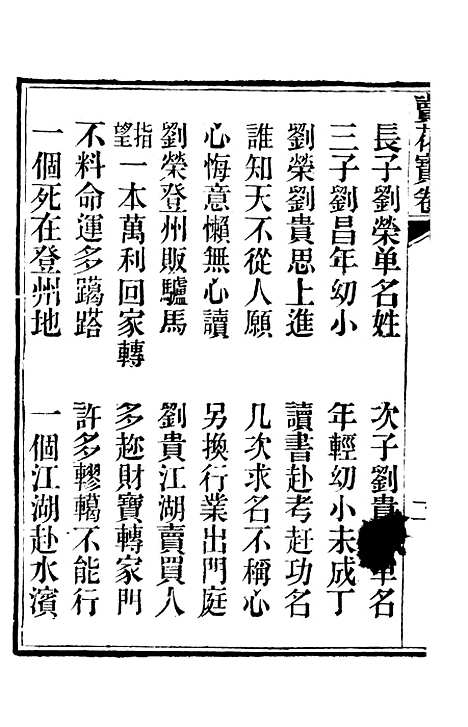 賣花寶卷
長子劉榮单名姓　次子劉貴單名
三子劉昌年幼小　年輕幼小未成丁
劉榮劉貴思上進　讀書赴考赶功名
誰知天不從人願　几次求名不稱心
心悔意懶無心讀　另換行業出門庭
劉榮登州販驢馬　劉貴江湖賣買人
指望一本萬利回家轉　多趂財寶轉家門
不料命運多蹋踏　許多轇轕不能行
一個死在登州地　一個江湖赴水濱